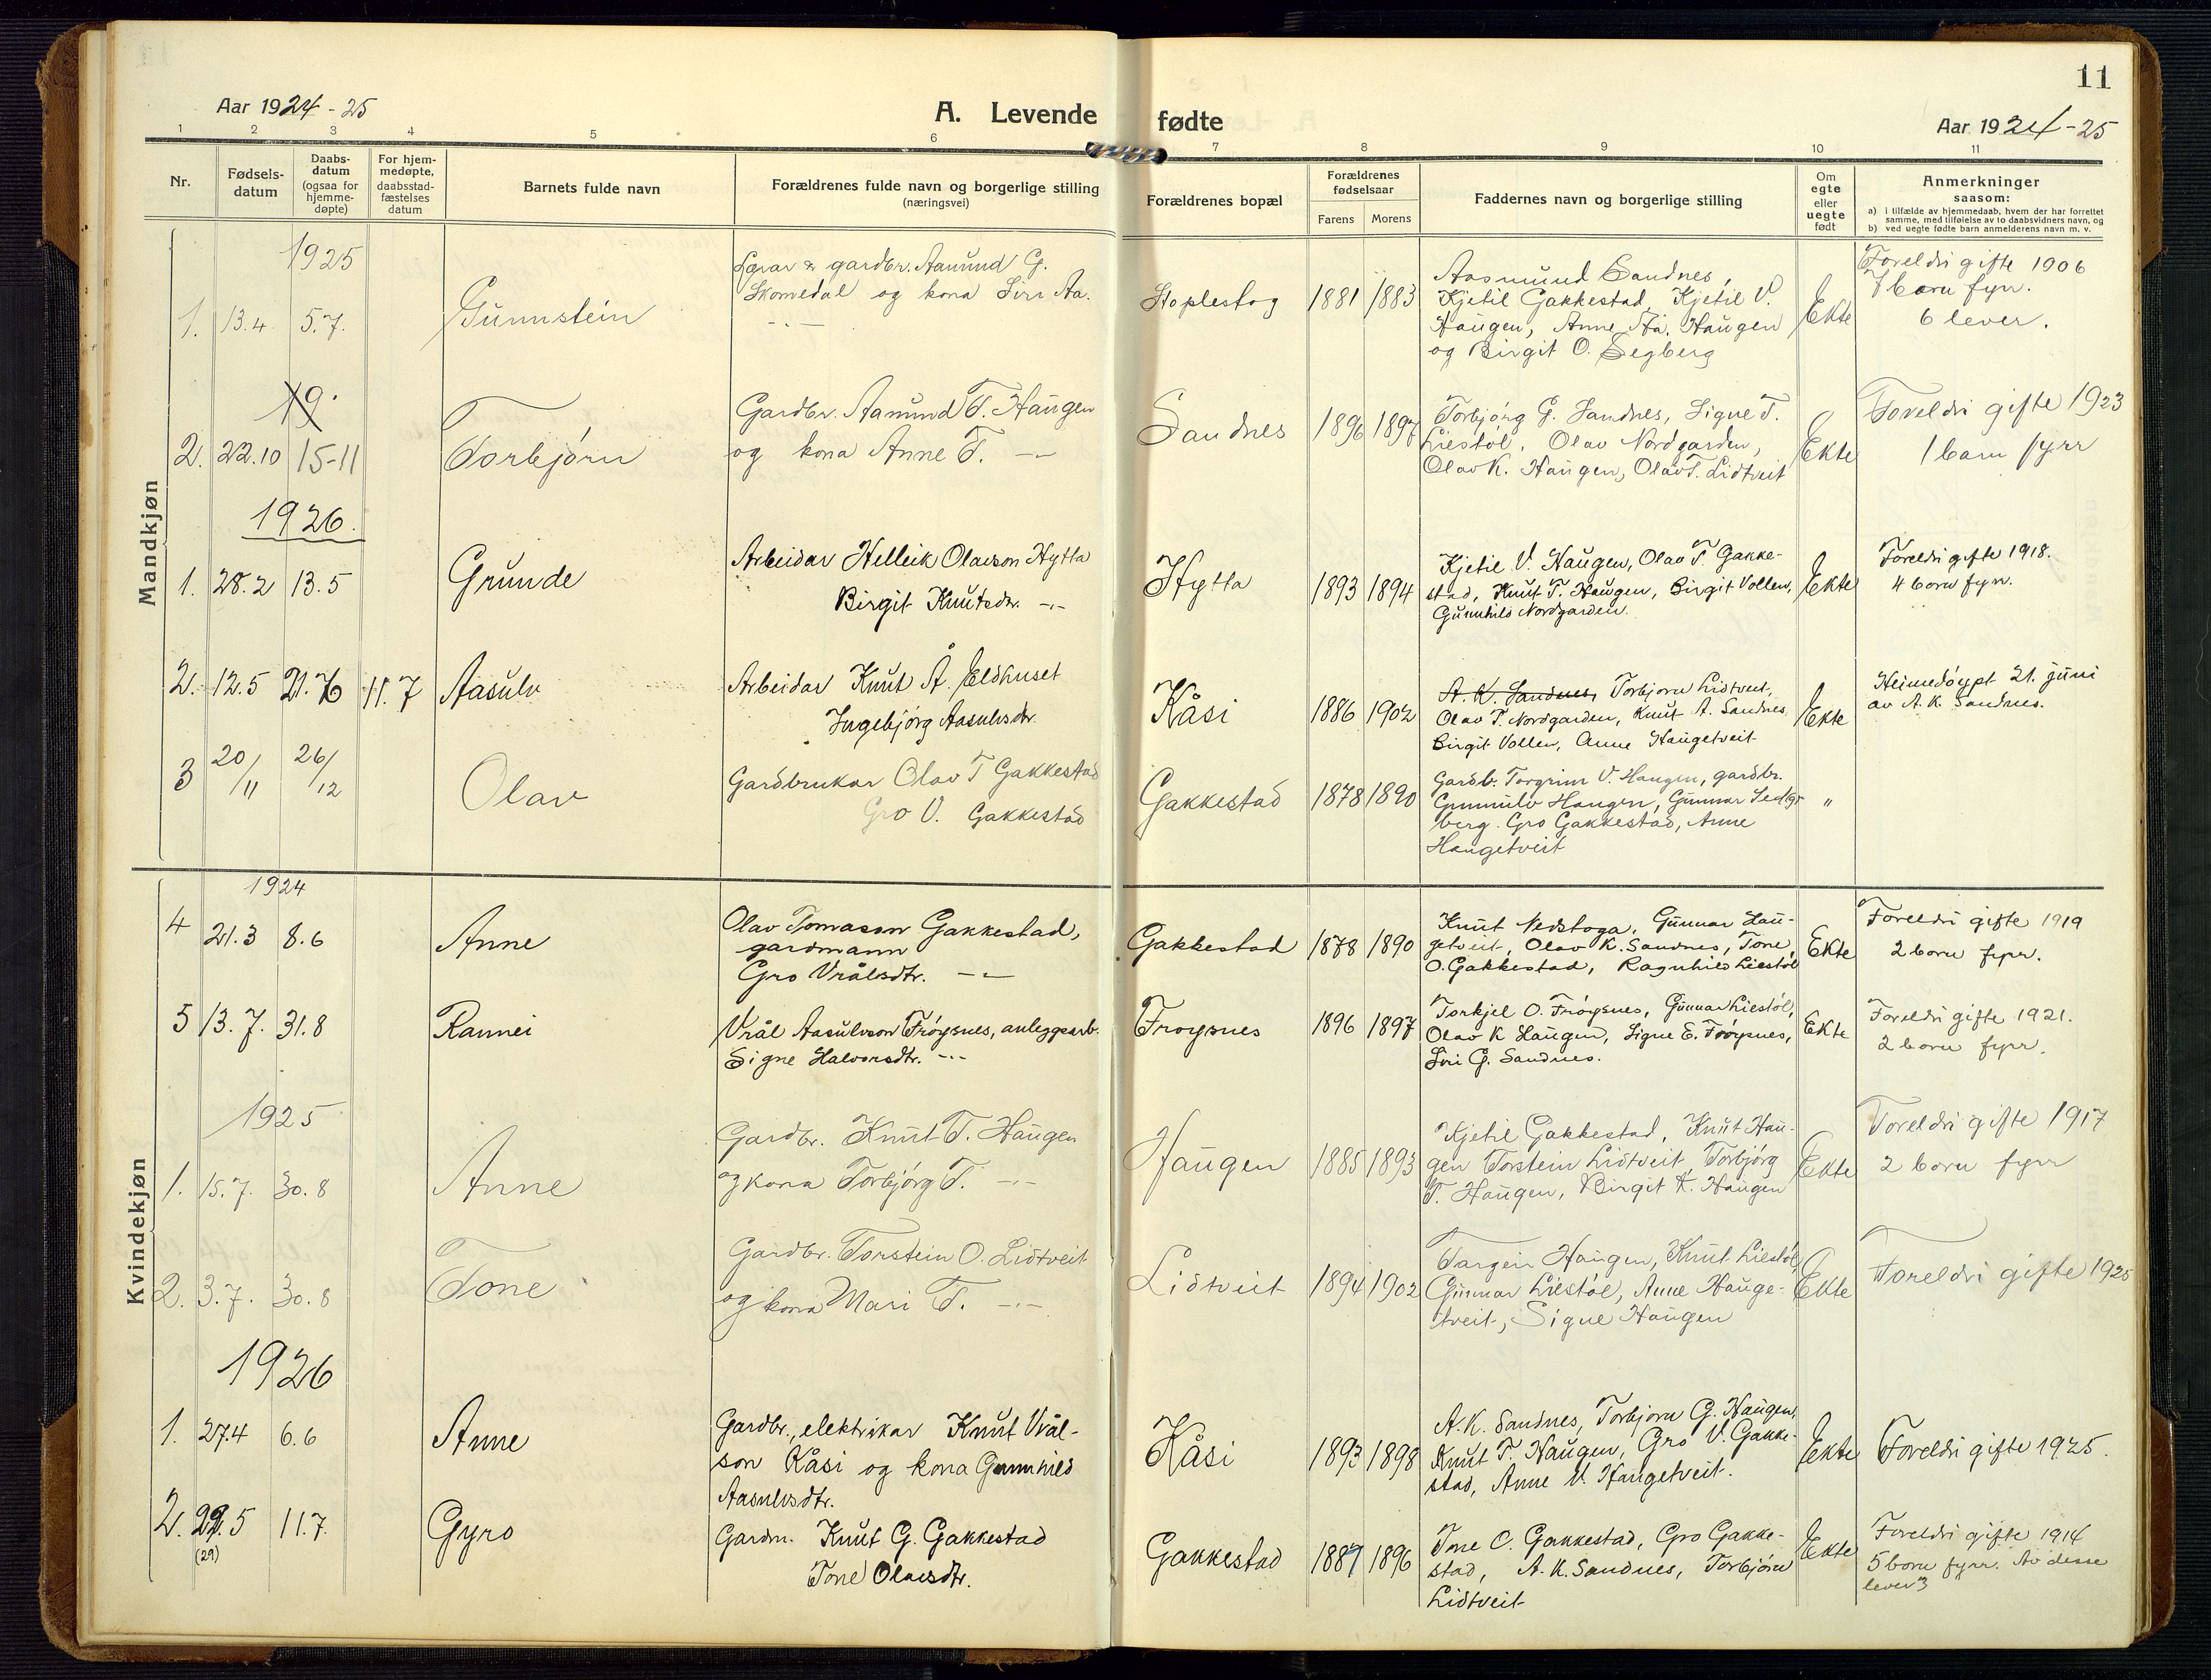 11
Aar 1924-25
A. Levende fødte
Aar 1924-25
1 2 3 4 5 6 7 8 9 10 11
Nr.
Fødsels-
datum
Daabs-
datum
(ogsaa for
hjemme-
døpte)
For hjem-
medøpte,
daabsstad-
fæstelses
datum
Barnets fulde navn
Forældrenes fulde navn og borgerlige stilling
(næringsvei)
Forældrenes bopæl
Forældrenes
fødselsaar
Farens Morens
Faddernes navn og borgerlige stilling
Om
egte
eller
uegte
født
Anmerkninger
saasom:
a) i tilfælde av hjemmedaab, hvem der har forrettet
samme, med tilføielse av to daabsvidners navn, og
b) ved uegte fødte barn anmelderens navn m. v.
Mandkjøn
1925
1. 13.4 5.7. Gunnstein
gardbr. Aamund G.
Skomedal og kona Siri Aa.
-.-
Stoplestog 1881 1883
Aasmund Sandnes,
Kjetil Gakkestad, Kjetil V.
Haugen, Anne Aa. Haugen
og Birgit O. Segberg
Ekte
Foreldri gifte 1906
7 born fyrr.
6 lever.
19.
2. 22.10 15-11 Torbjørn
Gardbr. Aamund T. Haugen
og kona Anne T. -.-
Sandnes 1896 1897
Torbjørg G. Sandnes, Signe T.
Liestøl, Olav Nordgarden,
Olav K. Haugen, Olav T. Lidtveit
Ekte
Foreldri gifte 1923
1 barn fyrr
1926.
1. 28.2 13.5 Grunde
Arbeidar Helleik Olavson Hytta
Birgit Knutsdr. -.-
Hytta 1893 1894
Kjetil V. Haugen, Olav T. Gakke-
stad, Knut T. Haugen, Birgit Vollen,
Gunnhild Nordgarden.
Ekte
Foreldri gifte 1918.
4 born fyrr.
2. 12.5 21.6 11.7 Aasulv
Arbeidar Knut Å. Eldhuset
Ingebjørg Aasulvsdtr.
Kåsi 1886 1902
A. K. Sandnes, Torbjørn Lidtveit,
Olav T. Nordgarden, Knut A. Sandnes
Birgit Vollen, Anne Haugetveit
Ekte
Heimedøypt 21. juni
av A. K. Sandnes.
3 20/11 26/12 Olav
Gardbrukar Olav T Gakkestad
Gro V. Gakkestad
Gakkestad 1878 1890
Gardb. Torgrim V. Haugen, gardbr.
Gunnulv Haugen, Gunnar
berg. Gro Gakkestad, Anne
Haugetveit
"
Kvindekjøn
1924
4 21.3 8.6 Anne
Olav Tomason Gakkestad,
gardmann
Gro Vrålsdtr. -.-
Gakkestad 1878 1890
Knut Nedstoga, Gunnar Hau-
getveit, Olav K. Sandnes, Tone,
O. Gakkestad, Ragnhild Liestøl
Ekte
Foreldri gifte 1919
2 born fyrr.
5 13.7. 31.8 Rannei
Vrål Aasulvson Frøysnes, anleggsarb.
Signe Halvorsdtr. -.-
Frøysnes 1896 1897
Torkjel O. Frøysnes, Gunnar Liestøl,
Olav K Haugen, Signe E. Frøysnes,
Siri G. Sandnes.
Ekte
Foreldri gifte 1921.
2 born fyrr.
1925
1. 15.7. 30.8 Anne
Gardbr. Knut T. Haugen
og kona Torbjørg T. -.-
Haugen 1885 1893
Kjetil Gakkestad, Knut Hau-
gen Torstein Lidtveit, Torbjørg
T. Haugen, Birgit K. Haugen
Ekte
Foreldri gifte 1917
2 born fyrr
2. 3.7. 30.8 Tone
Gardbr. Torstein O. Lidtveit
og kona Mari T. -.-
Lidtveit 1894 1902
Targeir Haugen, Knut Liestøl,
Gunnar Liestøl, Anne Hauge-
tveit, Signe Haugen
Ekte
Foreldri gifte 1925
1926
1. 27.4 6.6 Anne
Gardbr., elektrikar Knut Vrål-
son Kåsi og kona Gunnhild
Aasulvsdtr.
Kåsi 1893 1898
A. K. Sandnes, Torbjørn G. Haugen,
Knut T. Haugen, Gro V. Gakke-
stad, Anne V. Haugetveit.
Ekte
Foreldri gifte 1925.
2. 29.5 11.7. Gyro
(29)
Gardm. Knut G. Gakkestad
Tone Olavsdtr.
Gakkestad 1887 1896
Tone O. Gakkestad, Gro Gakke-
stad, A. K. Sandnes, Torbjørn
Lidtveit
Ekte
Foreldri gifte 1914
5 born fyrr. Av desse
lever 3